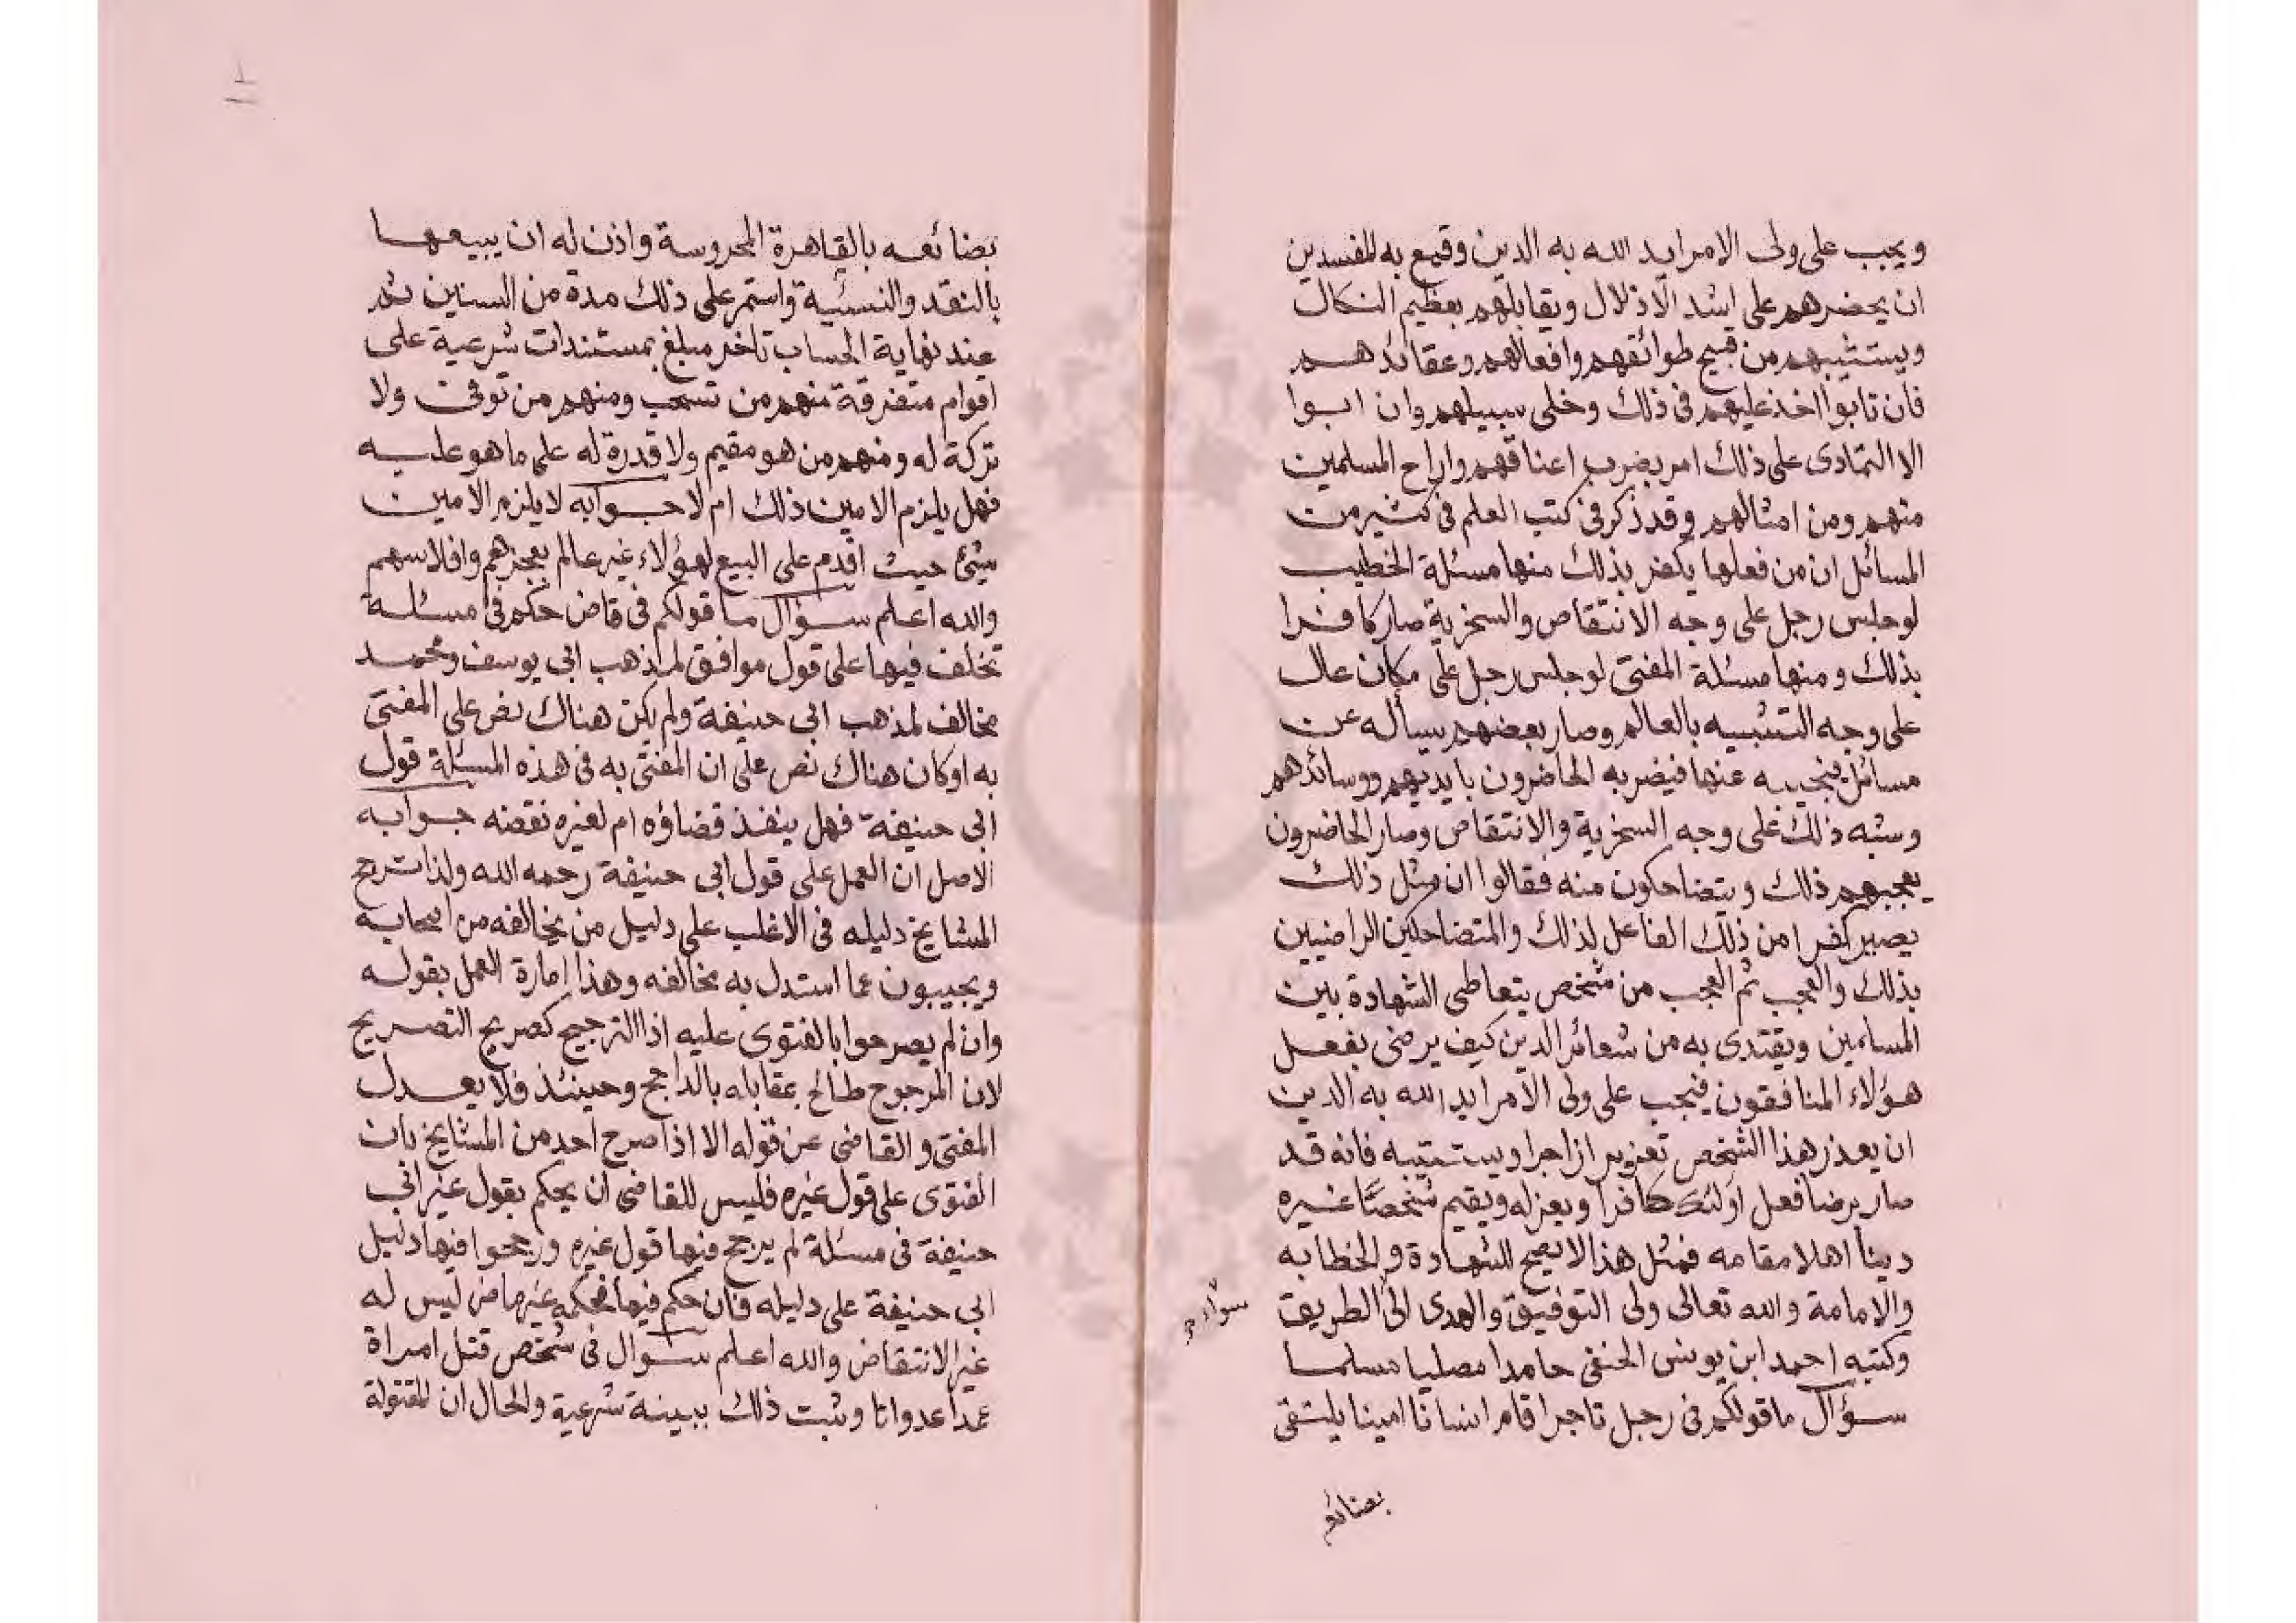 ويجب على ولى الامر ايد الله به الدين وقمع به المفسدين
ان يحضرهم على اشد الاذلال ويقابلهم بعظيم النكال
ويستثيبهم من قبيح طوائقهم وافعالهم وعقائدهم
فان تابوا اخذ عليهم فى ذلك وخلى سبيلهم وان ابوا
الا التمادى على ذلك امر بضرب اعناقهم واراح المسلمين
منهم ومن امثالهم وقد ذكر فى كتب العلم فى كثير من
المسائل ان من فعلها يكفر بذلك منها مسئلة الخطيب
لو جلس رجل على وجه الانتقاص والسخرية صار كافرا
بذلك ومنها مسئلة المفتى لو جلس رجل على مكان عال
على وجه التشبيه بالعالم وصار بعضهم يسأله عن
مسائل فيجيبه عنها فيضربه الحاضرون بايديهم ووسائدهم
وشبه ذلك على وجه السخرية والانتقاص وصار الحاضرون
يعجبهم ذلك ويتضاحكون منه فقالوا ان مثل ذلك
يصير كفرا من ذلك الفاعل لذلك والمتضاحكين الراضيين
بذلك والعجب ثم العجب من شخص يتعاطى الشهادة بين
المسلمين ويقتدى به من شعائر الدين كيف يرضى بفعل
هؤلاء المنافقون فيجب على ولى الامر ايد الله به الدين
ان يعذر هذا الشخص تعزيرا زاجرا ويستتيبه فانه قد
صار برضا فعل اولئك كافرا ويعزله ويقيم شخصا غيره
دينا اهلا مقامه فمثل هذا لا يصح للشهادة والخطابه
والامامة والله تعالى ولى التوفيق والهدى الى الطريق
وكتبه احمد ابن يونس الحنفى حامدا مصليا مسلما
سؤال ما قولكم فى رجل تاجر اقام انسانا امينا يلتقى
بضائعه
بضائعه بالقاهرة المحروسة واذن له ان يبيعها
بالنقد والنسئية واستمر على ذلك مدة من السنين ثم
عند نهاية الحساب تاخر مبلغ بمستندات شرعية على
اقوام متفرقة منهم من تسحب ومنهم من توفى ولا
تركة له ومنهم من هو مقيم ولا قدرة له على ما هو عليه
فهل يلزم الامين ذلك ام لا جوابه لا يلزم الامين
شئ حيث اقدم على البيع لهؤلاء غير عالم بعجزهم وافلاسهم
والله اعلم سؤال ما قولكم فى قاض حكم فى مسئلة
تخلف فيها على قول موافق لمذهب ابى يوسف ومحمد
مخالف لمذهب ابى حنيفة ولم يكن هناك نص على المفتى
به او كان هناك نص على ان المفتى به فى هذه المسئلة قول
ابى حنيفة فهل ينفذ قضاؤه ام لغيره نقضه جوابه
الاصل ان العمل على قول ابى حنيفة رحمه الله ولذا ترجح
المشايخ دليله فى الاغلب على دليل من يخالفه من اصحابه
ويجيبون عما استدل به مخالفه وهذا امارة العمل بقوله
وان لم يصرحوا بالفتوى عليه اذ الترجيح كصريح التصريح
لان المرجوح طائح بمقابله بالراجح وحينئذ فلا يعدل
المفتى والقاضى عن قوله الا اذا صرح احد من المشايخ بان
الفتوى على قول غيره فليس للقاضى ان يحكم بقول غير ابى
حنيفة فى مسئلة لم يرجح فيها قول غيره ورجحوا فيها دليل
ابى حنيفة على دليله فان حكم فيها فحكمه غير ماض ليس له
غير الانتقاض والله اعلم سؤال فى شخص قتل امراة
عمدا عدوانا وثبت ذلك ببينة شرعية والحال ان للمقتولة